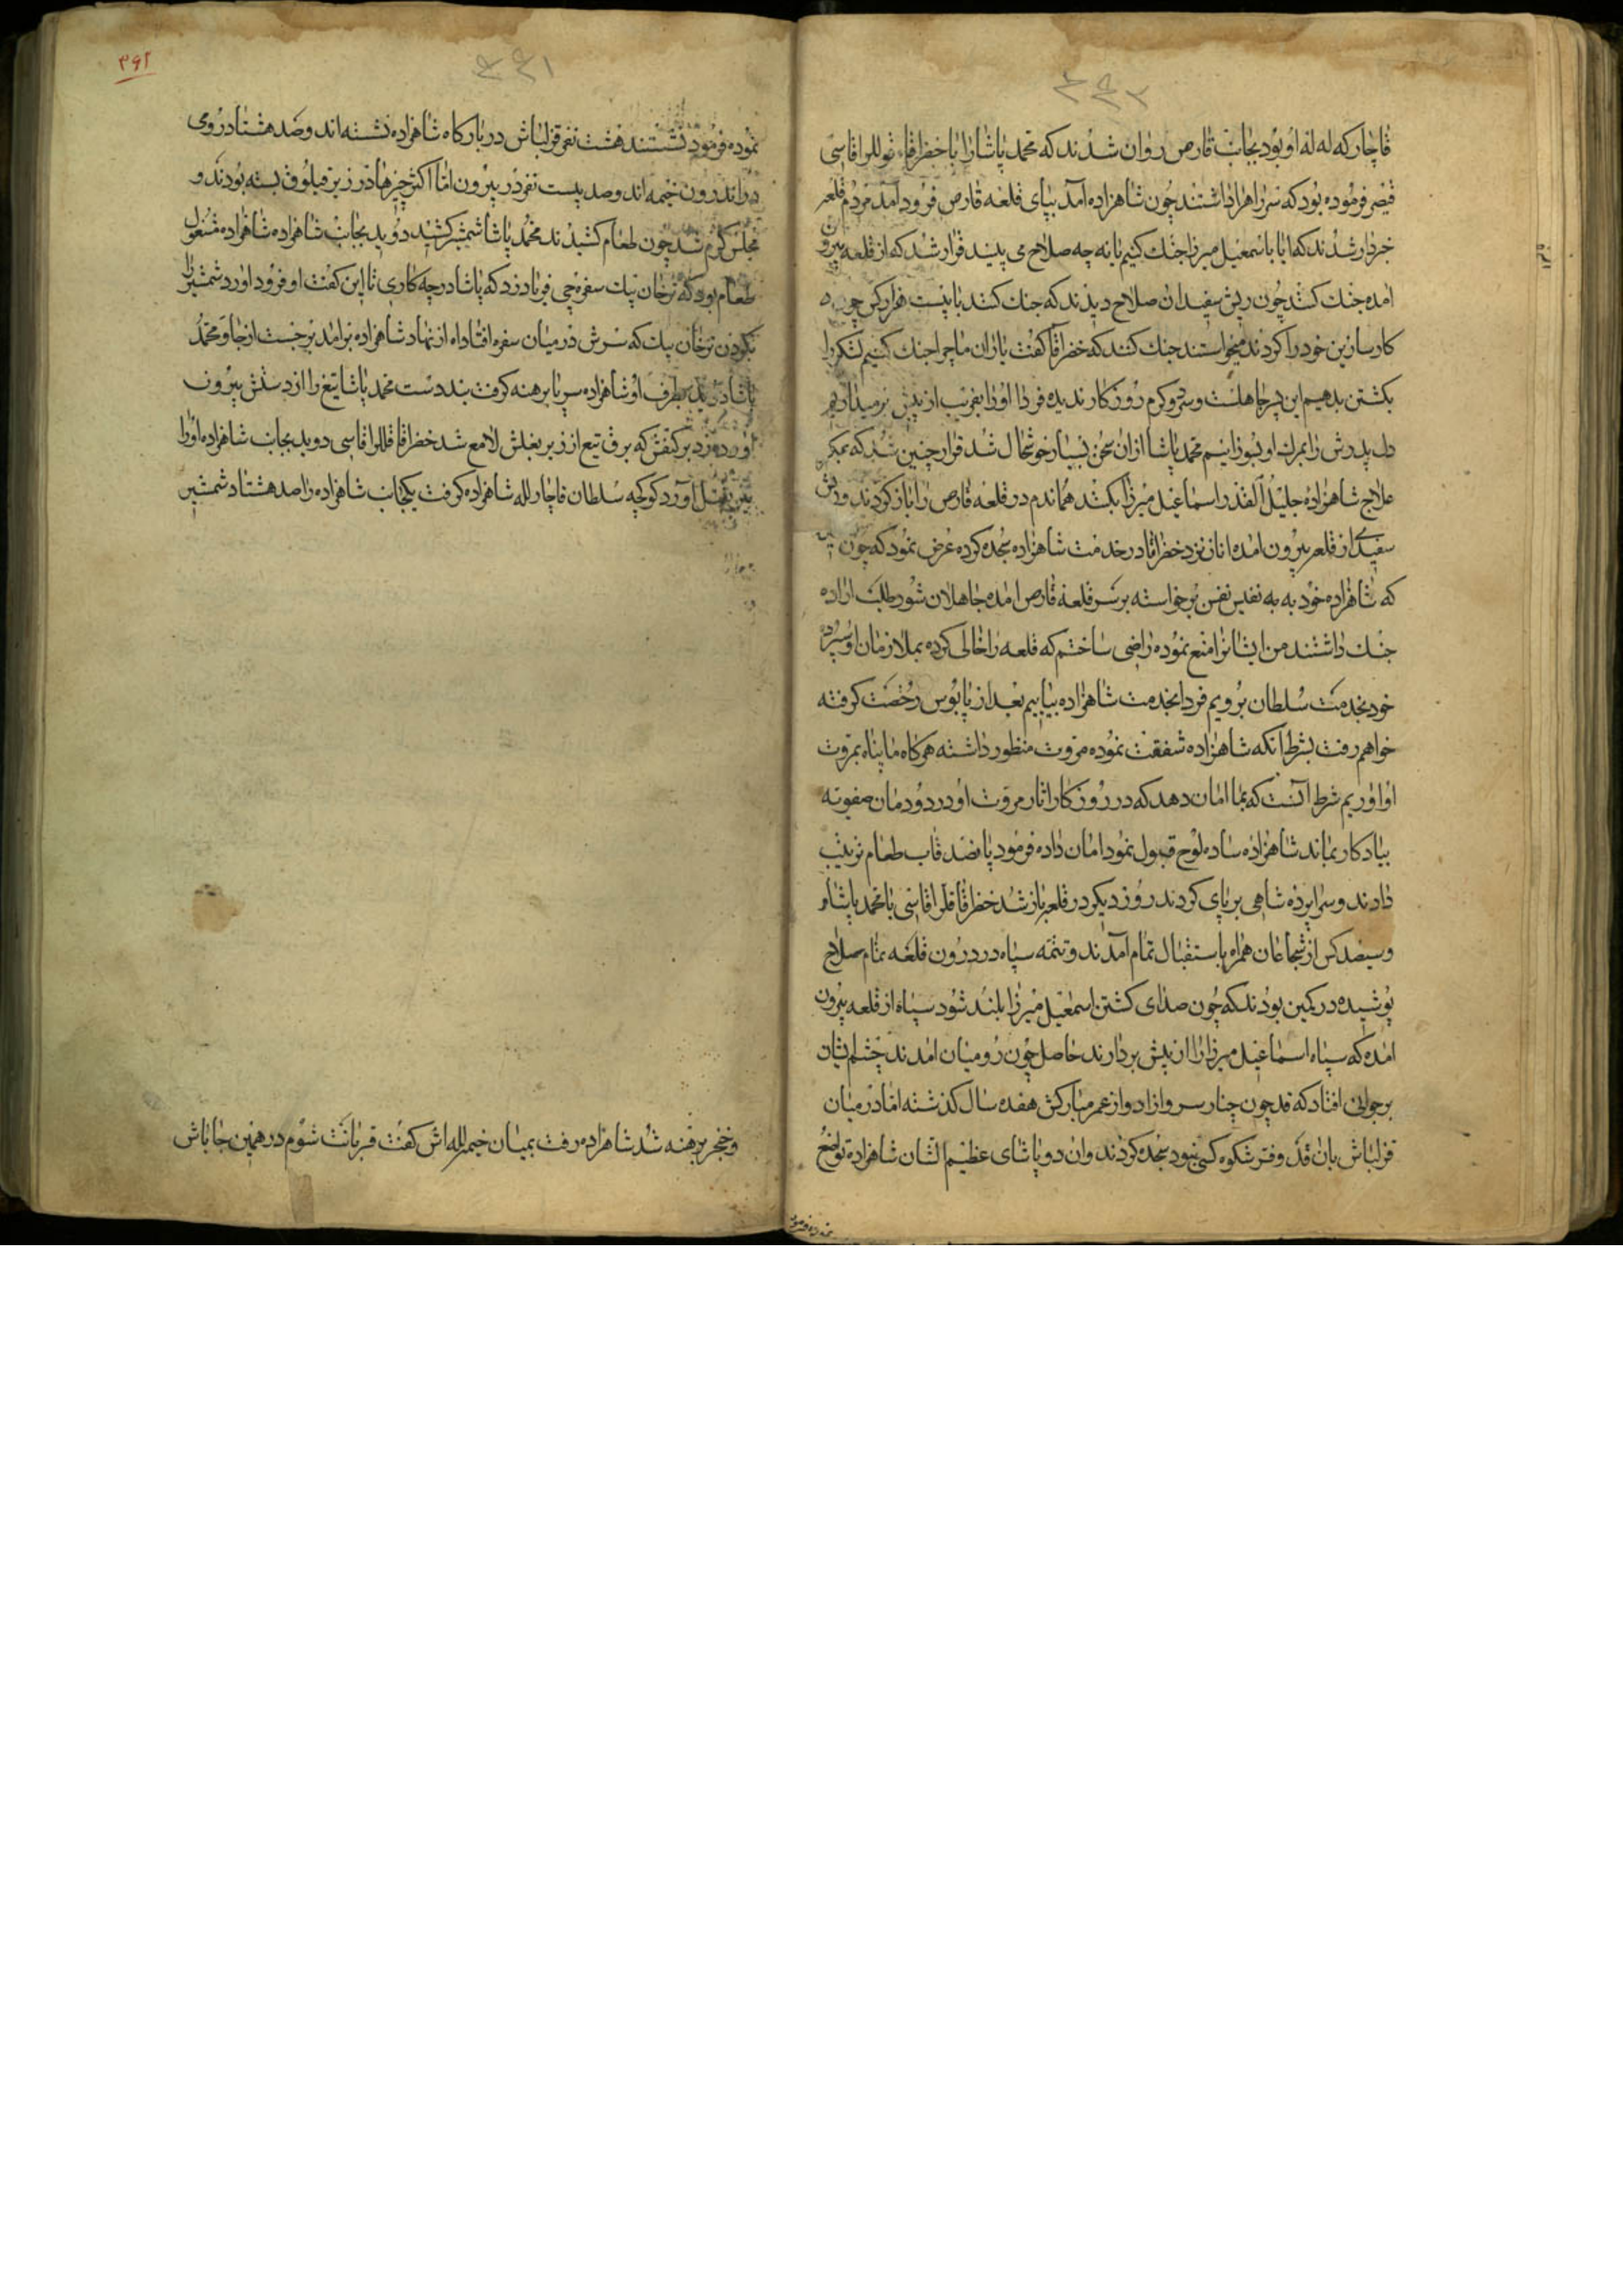 قاچار که له له او بود بجانب قارص روان شدند که محمد پاشا را با خضر اقاء قوللر اقاسی
قیصر فرموده بود که سر راهرا داشتند چون شاهزاده آمد بپای قلعه قارص فرود آمد مردم قلعه
خبردار شدند که ایا با اسمعیل میرزا جنك کنیم یا نه چه صلاح می بینید قرار شد که از قلعه بیرون
امده جنك کنند چون ریش سفیدان صلاح دیدند که جنك کنند با بیست هزار کس چون
کارسازین خود را کردند میخواستند جنك کنند که خضر اقا کفت یاران ما چرا جنك کنیم لشکر را
بکشتن بدهیم این پسر جاهلست و سرد و کرم روزکار ندیده فردا اورا بفریب از پیش برمیداریم
دل پدرش را بمرك او بسوزانیم محمد پاشا ازان سخن بسیار خوشحال شد قرار چنین شد که بمکر
علاج شاهزاده جلیل القدر اسماعیل میرزا بکنند هماندم در قلعه قارص را باز کردند و ریش
سفیدی از قلعه بیرون امده انان نزد خضر اقا در خدمت شاهزاده سجده کرده عرض نمود که چون
که شاهزاده خود به به نفیس نفس برخواسته بر سر قلعه قارص امده جاهلان شور طلب اراده
جنك داشتند من ایشانرا منع نموده راضی ساختم که قلعه را خالی کرده بملازمان او سپرده
خود بخدمت سلطان برویم فردا بخدمت شاهزاده بیاییم بعد از پابوس رخصت کرفته
خواهم رفت بشرط آنکه شاهزاده شفقت نموده مروت منظور داشته هرکاه ما پناه بمروت
او اوریم شرط آنست که بما امان دهد که در روزکار اثار مروت او در دودمان صفویه
بیادکار بماند شاهزاده ساده لوح قبول نمود امان داده فرمود پانصد قاب طعام ترتیب
دادند و سراپرده شاهی بر پای کردند روز دیکر در قلعه باز شد خضر اقا قلر اقاسی با محمد پاشا و
و سیصد کس از شجاعان همراه باستقبال تمام آمدند و تتمه سپاه در درون قلعه تمام صلاح
پوشیده در کمین بودند که چون صدای کشتن اسمعیل میرزا بلند شود سپاه از قلعه بیرون
امده که سپاه اسماعیل میرزا را از پیش بردارند حاصل چون رومیان امدند چشم ایشان
بر جوانی افتاد که قد چون چنار سرو ازاد و از عمر مبارکش هفده سال کذشته اما در میان
قزلباش بان قد و فر شکوه کسی نبود سجده کردند وان دو پاشای عظیم الشان شاهزاده تواضع
نموده فرمود
۳۹۲
نموده فرمود نشستند هشت نفر قزلباش در بارکاه شاهزاده نشسته اند و صد هشتاد رومی
در اندرون خیمه اند و صد بیست نفر در بیرون اما اکثر چیزها در زیر قبلوق بسته بودند و
مجلس کرم شد چون طعام کشیدند محمد پاشا شمشیر کشید دوید بجانب شاهزاده شاهزاده مشغول
طعام بود که ترخان بیك سفره چی فریاد زد که پاشا در چه کاری تا این کفت او فرود اورد شمشیر را
بکردن ترخان بیك که سرش در میان سفره افتاد اه از نهاد شاهزاده برامد برجست از جا و محمد
پاشا دوید بطرف او شاهزاده سر پا برهنه کرفت بند دست محمد پاشا تیغ را از دستش بیرون
اورده زد بر کتفش که برق تیع از زیر بغلش لامع شد خضر اقا قللر اقاسی دوید بجانب شاهزاده اورا
نیز بقتل آورد کوکچه سلطان قاچار لله شاهزاده کرفت یکجانب شاهزاده را صد هشتاد شمشیر
و خنجر برهنه شد شاهزاده رفت بمیان خیمه لله اش کفت قربانت شوم در همین جا باش